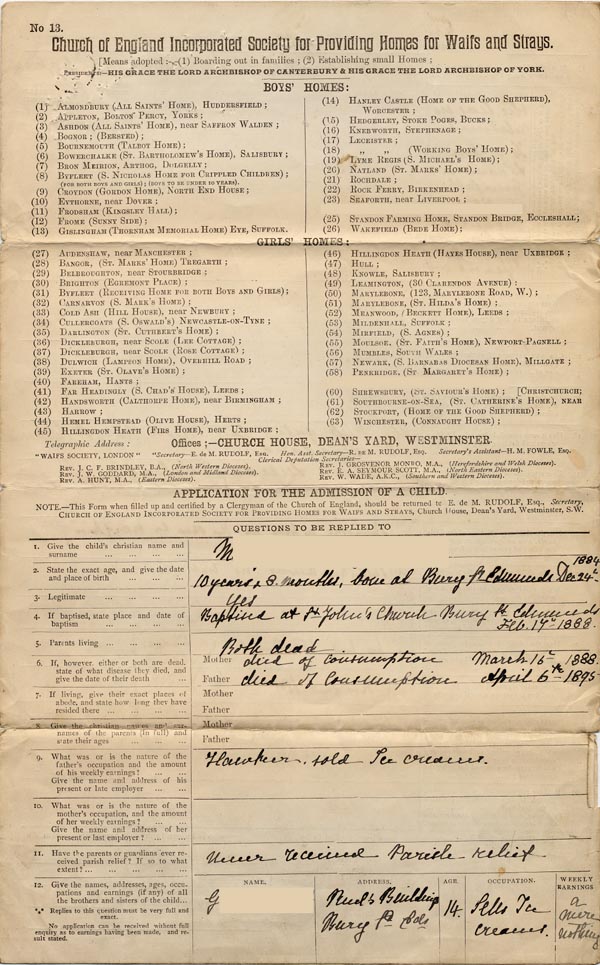 No 13.
Church of England Incorporated Society for Providing Homes for Waifs and Strays.
[Means adopted:—(1) Boarding out in families; (2) Establishing small Homes;
PRESIDENTS—HIS GRACE THE LORD ARCHBISHOP OF CANTERBURY & HIS GRACE THE LORD ARCHBISHOP OF YORK.
BOYS' HOMES:
(1) Almondbury (All Saints' Home), Huddersfield;
(2) Appleton, Bolton Percy, Yorks;
(3) Ashdon (All Saints' Home), near Saffron Walden;
(4) Bognor; (Bersted);
(5) Bournemouth (Talbot Home);
(6) Bowerchalke (St. Bartholomew's Home), Salisbury;
(7) Bron Meirion, Arthog, Dolgelly;
(8) Byfleet (S. Nicholas Home for Crippled Children);
(FOR BOTH BOYS AND GIRLS); (BOYS TO BE UNDER 10 YEARS).
(9) Croydon (Gordon Home), North End House;
(10) Eythorne, near Dover;
(11) Frodsham (Kingsley Hall);
(12) Frome (Sunny Side);
(13) Gislingham (Thornham Memorial Home) Eye, Suffolk.
(14) Hanley Castle (Home of the Good Shepherd),
Worcester;
(15) Hedgerley, Stoke Poges, Bucks;
(16) Knebworth, Stephenage;
(17) Leicester;
(18) " " (Working Boys' Home);
(19) Lyme Regis (S. Michael's Home);
(20) Natland (St. Marks' Home);
(21) Rochdale;
(22) Rock Ferry, Birkenhead;
(23) Seaforth, near Liverpool;
(25) Standon Farming Home, Standon Bridge, Eccleshall;
(26) Wakefield (Bede Home);
GIRLS' HOMES:
(27) Audenshaw, near Manchester;
(28) Bangor, (St. Marks' Home) Tregarth;
(29) Belbroughton, near Stourbridge;
(30) Brighton (Egremont Place);
(31) Byfleet (Receiving Home for both Boys and Girls);
(32) Carnarvon (S. Mark's Home);
(33) Cold Ash (Hill House), near Newbury;
(34) Cullercoats (S. Oswald's) Newcastle-on-Tyne;
(35) Darlington (St. Cuthbert's Home);
(36) Dickleburgh, near Scole (Lee Cottage);
(37) Dickleburgh, near Scole (Rose Cottage);
(38) Dulwich (Lampson Home), Overhill Road;
(39) Exeter (St. Olave's Home);
(40) Fareham, Hants;
(41) Far Headingly (S. Chad's House), Leeds;
(42) Handsworth (Calthorpe Home), near Birmingham;
(43) Harrow;
(44) Hemel Hempstead (Olive House), Herts;
(45) Hillingdon Heath (Firs Home), near Uxbridge;
(46) Hillingdon Heath (Hayes House), near Uxbridge;
(47) Hull;
(48) Knowle, Salisbury;
(49) Leamington, (30 Clarendon Avenue);
(50) Marylebone, (123, Marylebone Road, W.);
(51) Marylebone, (St. Hilda's Home);
(52) Meanwood, (Beckett Home), Leeds;
(53) Mildenhall, Suffolk;
(54) Mirfield, (S. Agnes);
(55) Moulsoe, (St. Faith's Home), Newport-Pagnell;
(56) Mumbles, South Wales;
(57) Newark, (S. Barnabas Diocesan Home), Millgate;
(58) Penkridge, (St Margaret's Home);
(60) Shrewsbury, (St. Saviour's Home); [Christchurch;
(61) Southbourne-on-Sea, (St. Catherine's Home), near
(62) Stockport, (Home of the Good Shepherd);
(63) Winchester, (Connaught House);
Telegraphic Address: Offices;—CHURCH HOUSE, DEAN'S YARD, WESTMINSTER.
"WAIFS SOCIETY, LONDON" "Secretary—E. de M. RUDOLF, Esq. Hon. Asst. Secretary—R. de M. RUDOLF, Esq. Secretary's Assistant—H. M. FOWLE, Esq.
Clerical Deputation Secretaries—
Rev. J. C. F. BRINDLEY, B.A., (North Western Dioceses).
Rev. J. W. GODDARD, M.A., (London and Midland Dioceses).
Rev. A. HUNT, M.A., (Eastern Dioceses).
Rev. J. GROSVENOR MONRO, M.A., (Herefordshire and Welsh Dioceses).
Rev. E. A. SEYMOUR SCOTT, M.A., (North Eastern Dioceses).
Rev. W. WADE, A.K.C., (Southern and Western Dioceses).
APPLICATION FOR THE ADMISSION OF A CHILD.
NOTE.—This Form when filled up and certified by a Clergyman of the Church of England, should be returned to E. de M. RUDOLF, Esq., Secretary,
CHURCH OF ENGLAND INCORPORATED SOCIETY FOR PROVIDING HOMES FOR WAIFS AND STRAYS, Church House, Dean's Yard, Westminster, S.W.
QUESTIONS TO BE REPLIED TO
1. Give the child's christian name and
surname ... ... ... ...
M
2. State the exact age, and give the date
and place of birth ... ... ...
1884
10 years & 8 months, born at Bury St Edmunds Dec 24th
3. Legitimate ... ... ... ...
Yes
4. If baptised, state place and date of
baptism ... ... ... ...
Baptised at St John's Church Bury St Edmunds
Feb. 17th 1888.
5. Parents living ... ... ...
Both dead
6. If, however, either or both are dead,
state of what disease they died, and
give the date of their death ...
Mother died of Consumption March 16th 1888.
Father died of Consumption April 6th 1895
7. If living, give their exact places of
abode, and state how long they have
resided there ... ... ...
Mother
Father
8. Give the christian names and sur-
names of the parents (in full) and
state their ages ... ... ...
Mother
Father
9. What was or is the nature of the
father's occupation and the amount
of his weekly earnings? ... ...
Give the name and address of his
present or late employer ... ...
Hawker, sold Ice creams.
10. What was or is the nature of the
mother's occupation, and the amount
of her weekly earnings? ... ...
Give the name and address of her
present or last employer? ... ...
11. Have the parents or guardians ever re-
ceived parish relief? If so to what
extent? ... ... ... ...
Never received Parish relief.
12. Give the names, addresses, ages, occu-
pations and earnings (if any) of all
the brothers and sisters of the child...
*** Replies to this question must be very full and
exact.
No application can be received without full
enquiry as to earnings having been made, and re-
sult stated.
NAME. ADDRESS. AGE. OCCUPATION. WEEKLY EARNINGS
G Buildings 14. Sells Ice a
Bury St Eds creams. mere
nothing